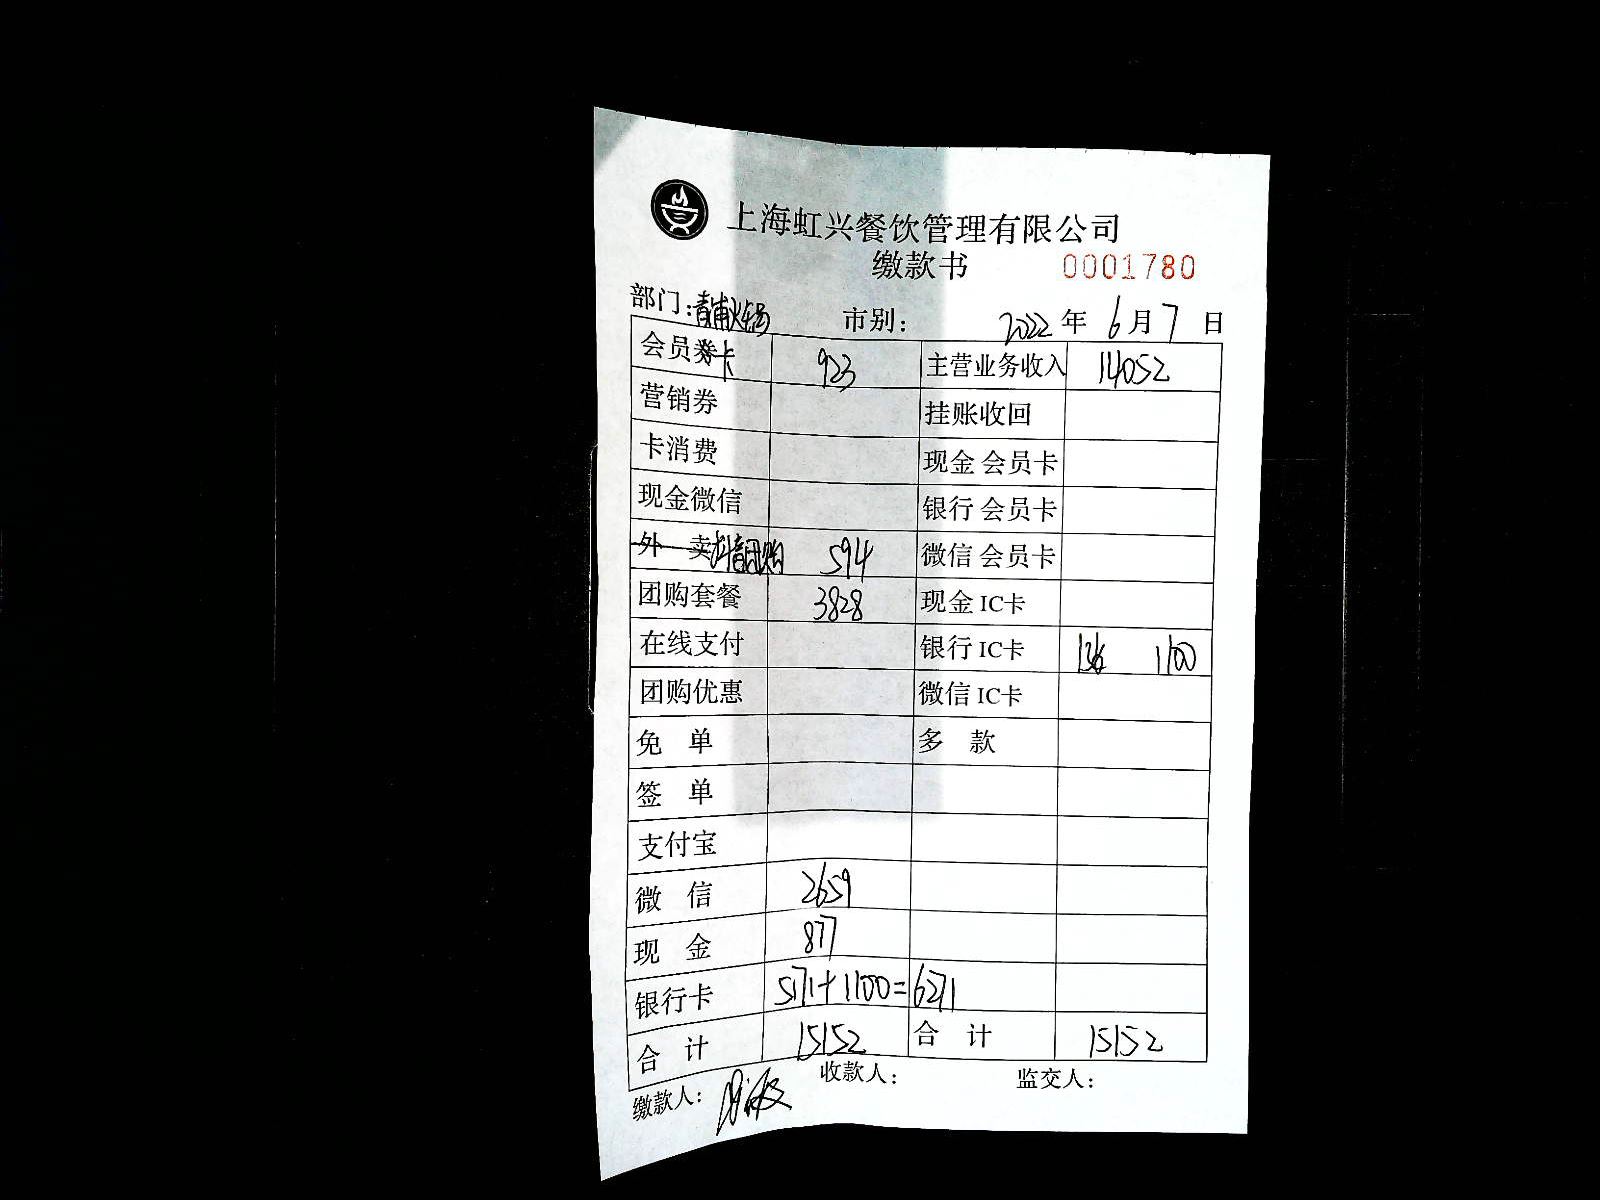 上海虹兴餐饮管理有限公司
缴款书 0001780
部门：青浦火锅 市别： 2022年6月7日
会员卡 923 主营业务收入 14052
营销券 挂账收回
卡消费 现金 会员卡
现金微信 银行 会员卡
外 卖 抖音团购 594 微信 会员卡
团购套餐 3828 现金 IC卡
在线支付 银行 IC卡 136 1100
团购优惠 微信 IC卡
免 单 多 款
签 单
支付宝
微 信 2659
现 金 877
银行卡 5171+1100=6271
合 计 15152 合 计 15152
缴款人： 收款人： 监交人：